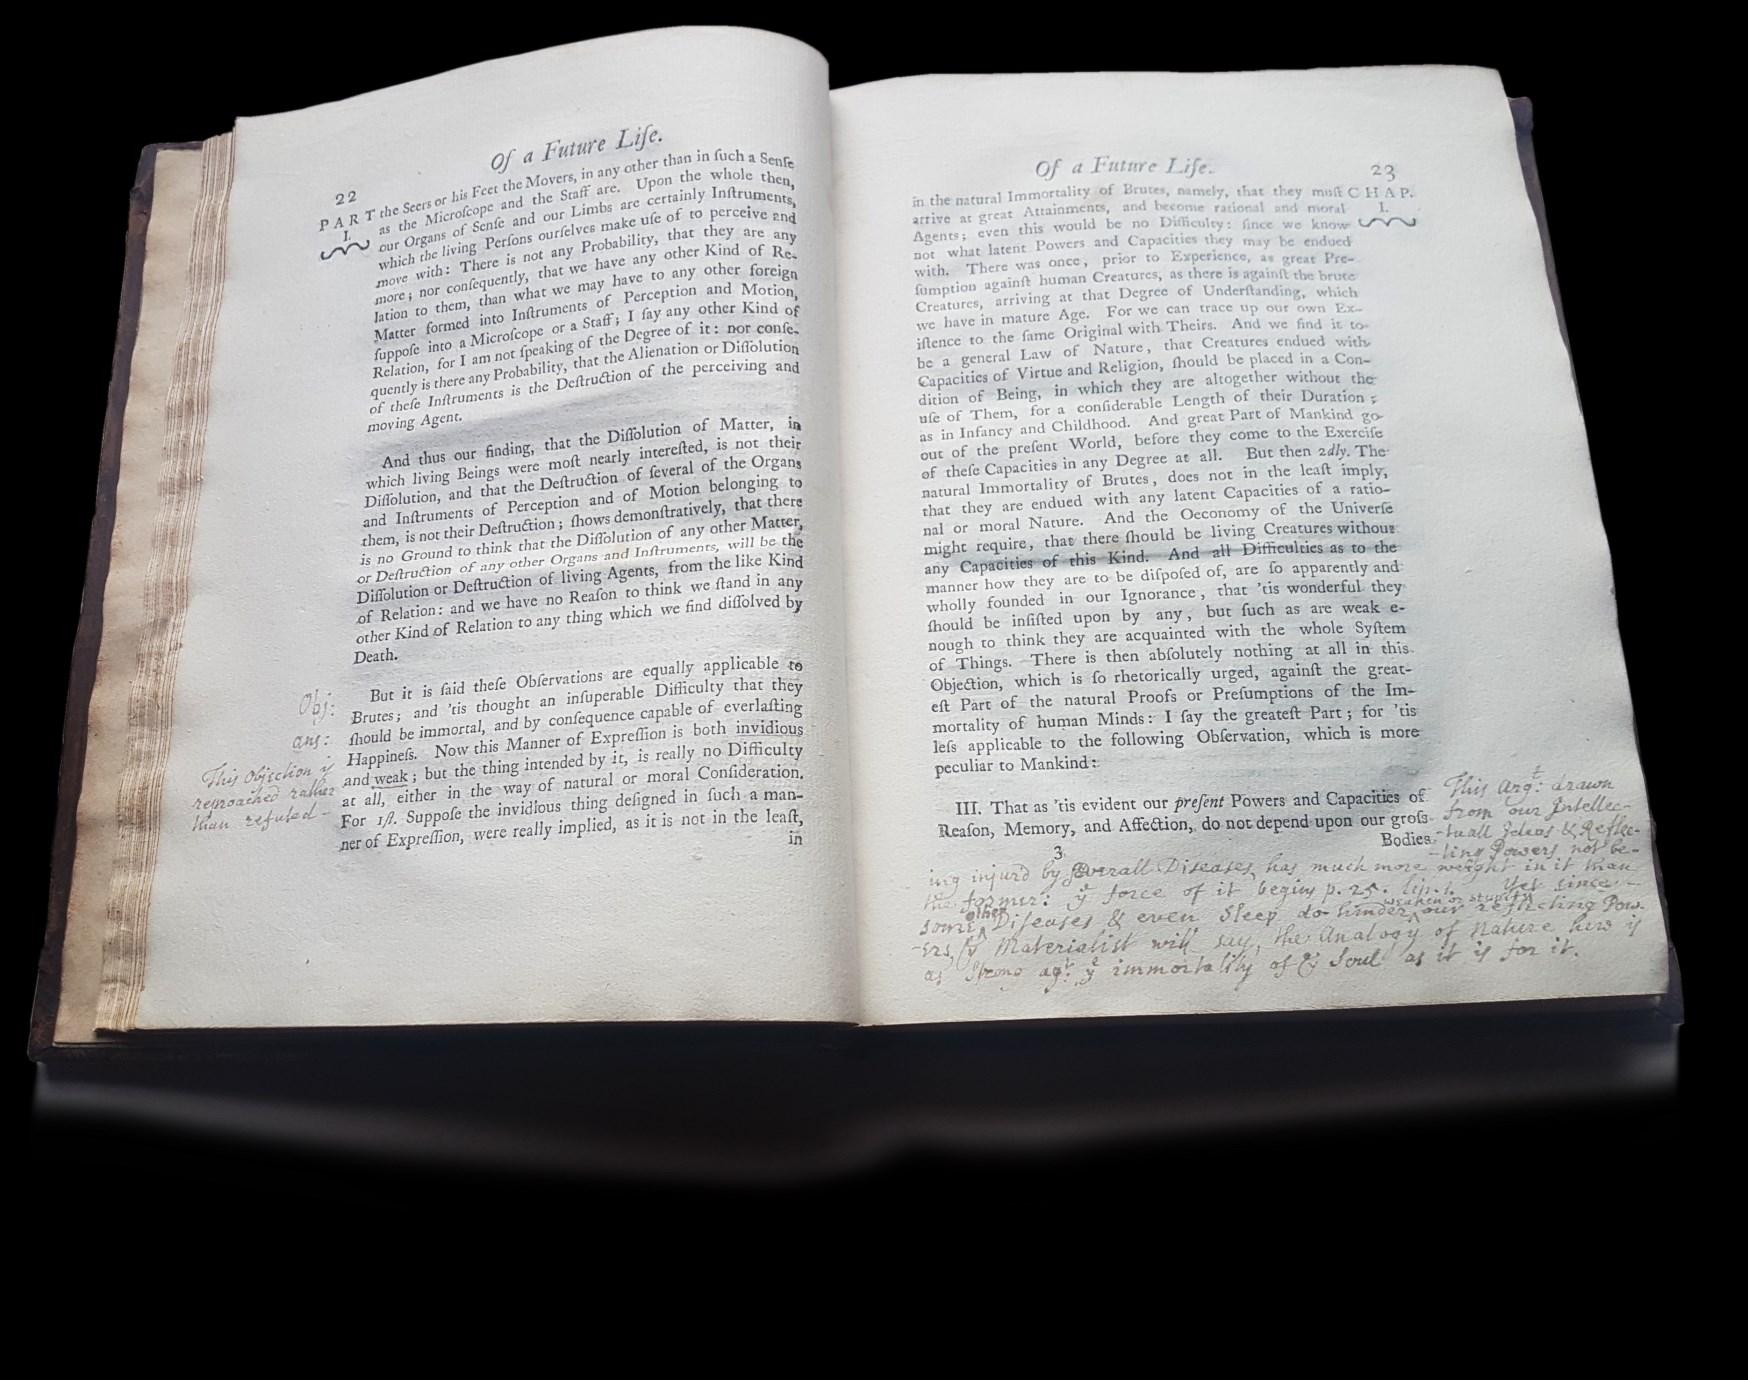 Of a Future Liſe.
22
PART
I.
the Seers or his Feet the Movers, in any other than in ſuch a Senſe
as the Microſcope and the Staff are. Upon the whole then,
our Organs of Senſe and our Limbs are certainly Inſtruments,
which the living Perſons ourſelves make uſe of to perceive and
move with: There is not any Probability, that they are any
more; nor conſequently, that we have any other Kind of Re-
lation to them, than what we may have to any other foreign
Matter formed into Inſtruments of Perception and Motion,
ſuppoſe into a Microſcope or a Staff; I ſay any other Kind of
Relation, for I am not ſpeaking of the Degree of it: nor conſe-
quently is there any Probability, that the Alienation or Diſſolution
of theſe Inſtruments is the Deſtruction of the perceiving and
moving Agent.
And thus our finding, that the Diſſolution of Matter, in
which living Beings were moſt nearly intereſted, is not their
Diſſolution, and that the Deſtruction of ſeveral of the Organs
and Inſtruments of Perception and of Motion belonging to
them, is not their Deſtruction; ſhows demonſtratively, that there
is no Ground to think that the Diſſolution of any other Matter,
or Deſtruction of any other Organs and Inſtruments, will be the
Diſſolution or Deſtruction of living Agents, from the like Kind
of Relation: and we have no Reaſon to think we ſtand in any
other Kind of Relation to any thing which we find diſſolved by
Death.
But it is ſaid theſe Obſervations are equally applicable to
Brutes; and 'tis thought an inſuperable Difficulty that they
ſhould be immortal, and by conſequence capable of everlaſting
Happineſs. Now this Manner of Expreſſion is both invidious
and weak; but the thing intended by it, is really no Difficulty
at all, either in the way of natural or moral Conſideration.
For 1ſt. Suppoſe the invidious thing deſigned in ſuch a man-
ner of Expreſſion, were really implied, as it is not in the leaſt,
in
Obj:
ans:
This Objection is
reproached rather
than refuted -
Of a Future Liſe.
23
CHAP.
I.
in the natural Immortality of Brutes, namely, that they muſt
arrive at great Attainments, and become rational and moral
Agents; even this would be no Difficulty: ſince we know
not what latent Powers and Capacities they may be endued
with. There was once, prior to Experience, as great Pre-
ſumption againſt human Creatures, as there is againſt the brute
Creatures, arriving at that Degree of Underſtanding, which
we have in mature Age. For we can trace up our own Ex-
iſtence to the ſame Original with Theirs. And we find it to
be a general Law of Nature, that Creatures endued with
Capacities of Virtue and Religion, ſhould be placed in a Con-
dition of Being, in which they are altogether without the
uſe of Them, for a conſiderable Length of their Duration;
as in Infancy and Childhood. And great Part of Mankind go
out of the preſent World, before they come to the Exerciſe
of theſe Capacities in any Degree at all. But then 2dly. The
natural Immortality of Brutes, does not in the leaſt imply,
that they are endued with any latent Capacities of a ratio-
nal or moral Nature. And the Oeconomy of the Univerſe
might require, that there ſhould be living Creatures without
any Capacities of this Kind. And all Difficulties as to the
manner how they are to be diſpoſed of, are ſo apparently and
wholly founded in our Ignorance, that 'tis wonderful they
ſhould be inſiſted upon by any, but ſuch as are weak e-
nough to think they are acquainted with the whole Syſtem
of Things. There is then abſolutely nothing at all in this
Objection, which is ſo rhetorically urged, againſt the great-
eſt Part of the natural Proofs or Preſumptions of the Im-
mortality of human Minds: I ſay the greateſt Part; for 'tis
leſs applicable to the following Obſervation, which is more
peculiar to Mankind:
III. That as 'tis evident our preſent Powers and Capacities of
Reaſon, Memory, and Affection, do not depend upon our groſs
Bodies
3.
This Argt: drawn
from our Intellec-
-tuall Ideas & Reflec-
-ting Powers not be-
ing injurd by severall Diseases has much more weight in it than
the former: ye force of it begins p. 25. lin. 1. Yet since
some other Diseases & even Sleep do hinder weaken or stupify our reflecting Pow-
-ers, ye Materialist will say, the Analogy of Nature here is
as strong agt. ye immortality of ye Soul as it is for it.